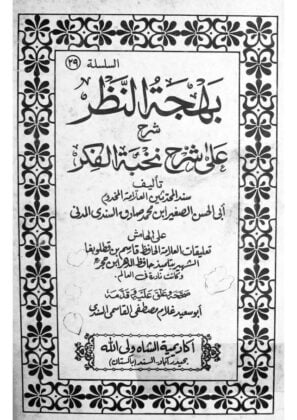 السلسلة ٢٩
بهجة النظر
شرح
على شرح نخبة الفكر
تأليف
سند المحدثين العلامة المخدوم
أبي الحسن الصغير ابن محمد صادق السندي المدني
على الهامش
تعليقات العلامة الحافظ قاسم بن قطلوبغا
الشهير بتلميذ حافظ الدهر ابن حجر
وكانت نادرة في العالم
صححه وعلق عليه في قدمه
أبو سعيد غلام مصطفى القاسمي السندي
أكاديمية الشاه ولي الله
بحيدرآباد السند (پاكستان)